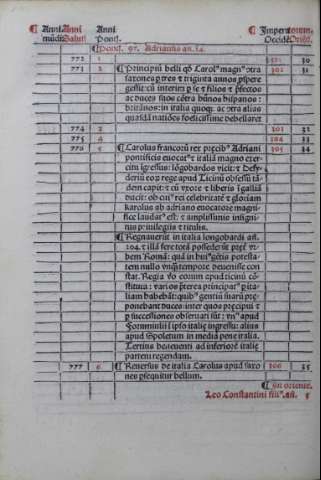 ¶ Anni Anni Anni ¶ Imperatorum.
mūdi Salut. Pontif. Occidē. Oriēt.
¶ Pont. 97. Adrianus an. 24
772 1 30
773 2 ¶ Principiū belli qđ Carol⁹ magn⁹ ɔtra 302 31
saxones ꝑ tres & triginta annos ꝓspere
gessit: cū interim ꝑ se & filios & p̄fectos
ac duces suos cōtra hūnos hispanos:
britānos: in italia quoqȝ: ac ɔtra alias
quasdā natiōes foelicissime debellaret
774 3 303 32
775 4 304 33
776 5 ¶ Carolus francoꝝ rex precib⁹ Adriani 305 34
pontificis euocat⁹ ī italiā magno exer-
citu īgressus: lōgobardos vicit: & Desy-
deriū eoꝝ rege apud Ticinū obsessū tā-
dem capit: & cū vxore & liberis ī galliā
ducit: ob cui⁹ rei celebritatē & gloriam
karolus ab adriano euocatore magni-
fice laudat⁹ est: & amplissimis insigni-
tus priuilegiis & titulis.
¶ Regnauerūt in italia longobardi añ.
204. & illā fere totā possederūt
bem Romā: quā in hui⁹ gētis potesta-
tem nullo vnqȝ tempore deuenisse con-
stat. Regia ꝟo eorum apud ticinū cō-
stituta: varios
liam habebāt: quib⁹ gentiū suarū p̄ę-
ponebant duces inter quos pręcipui &
ꝑ successiones obseruati sūt: vn⁹ apud
Forumiulii ī ipso italię ingressu: alius
apud Spoletum in media pene italia.
Tertius beneuenti ad inferiorē italię
partem regendam.
777 6 ¶ Reuersus de italia Carolus apud saxo 306 35
nes ꝓsequitur bellum.
¶ In oriente.
Leo Constantini fili⁹. añ. 5